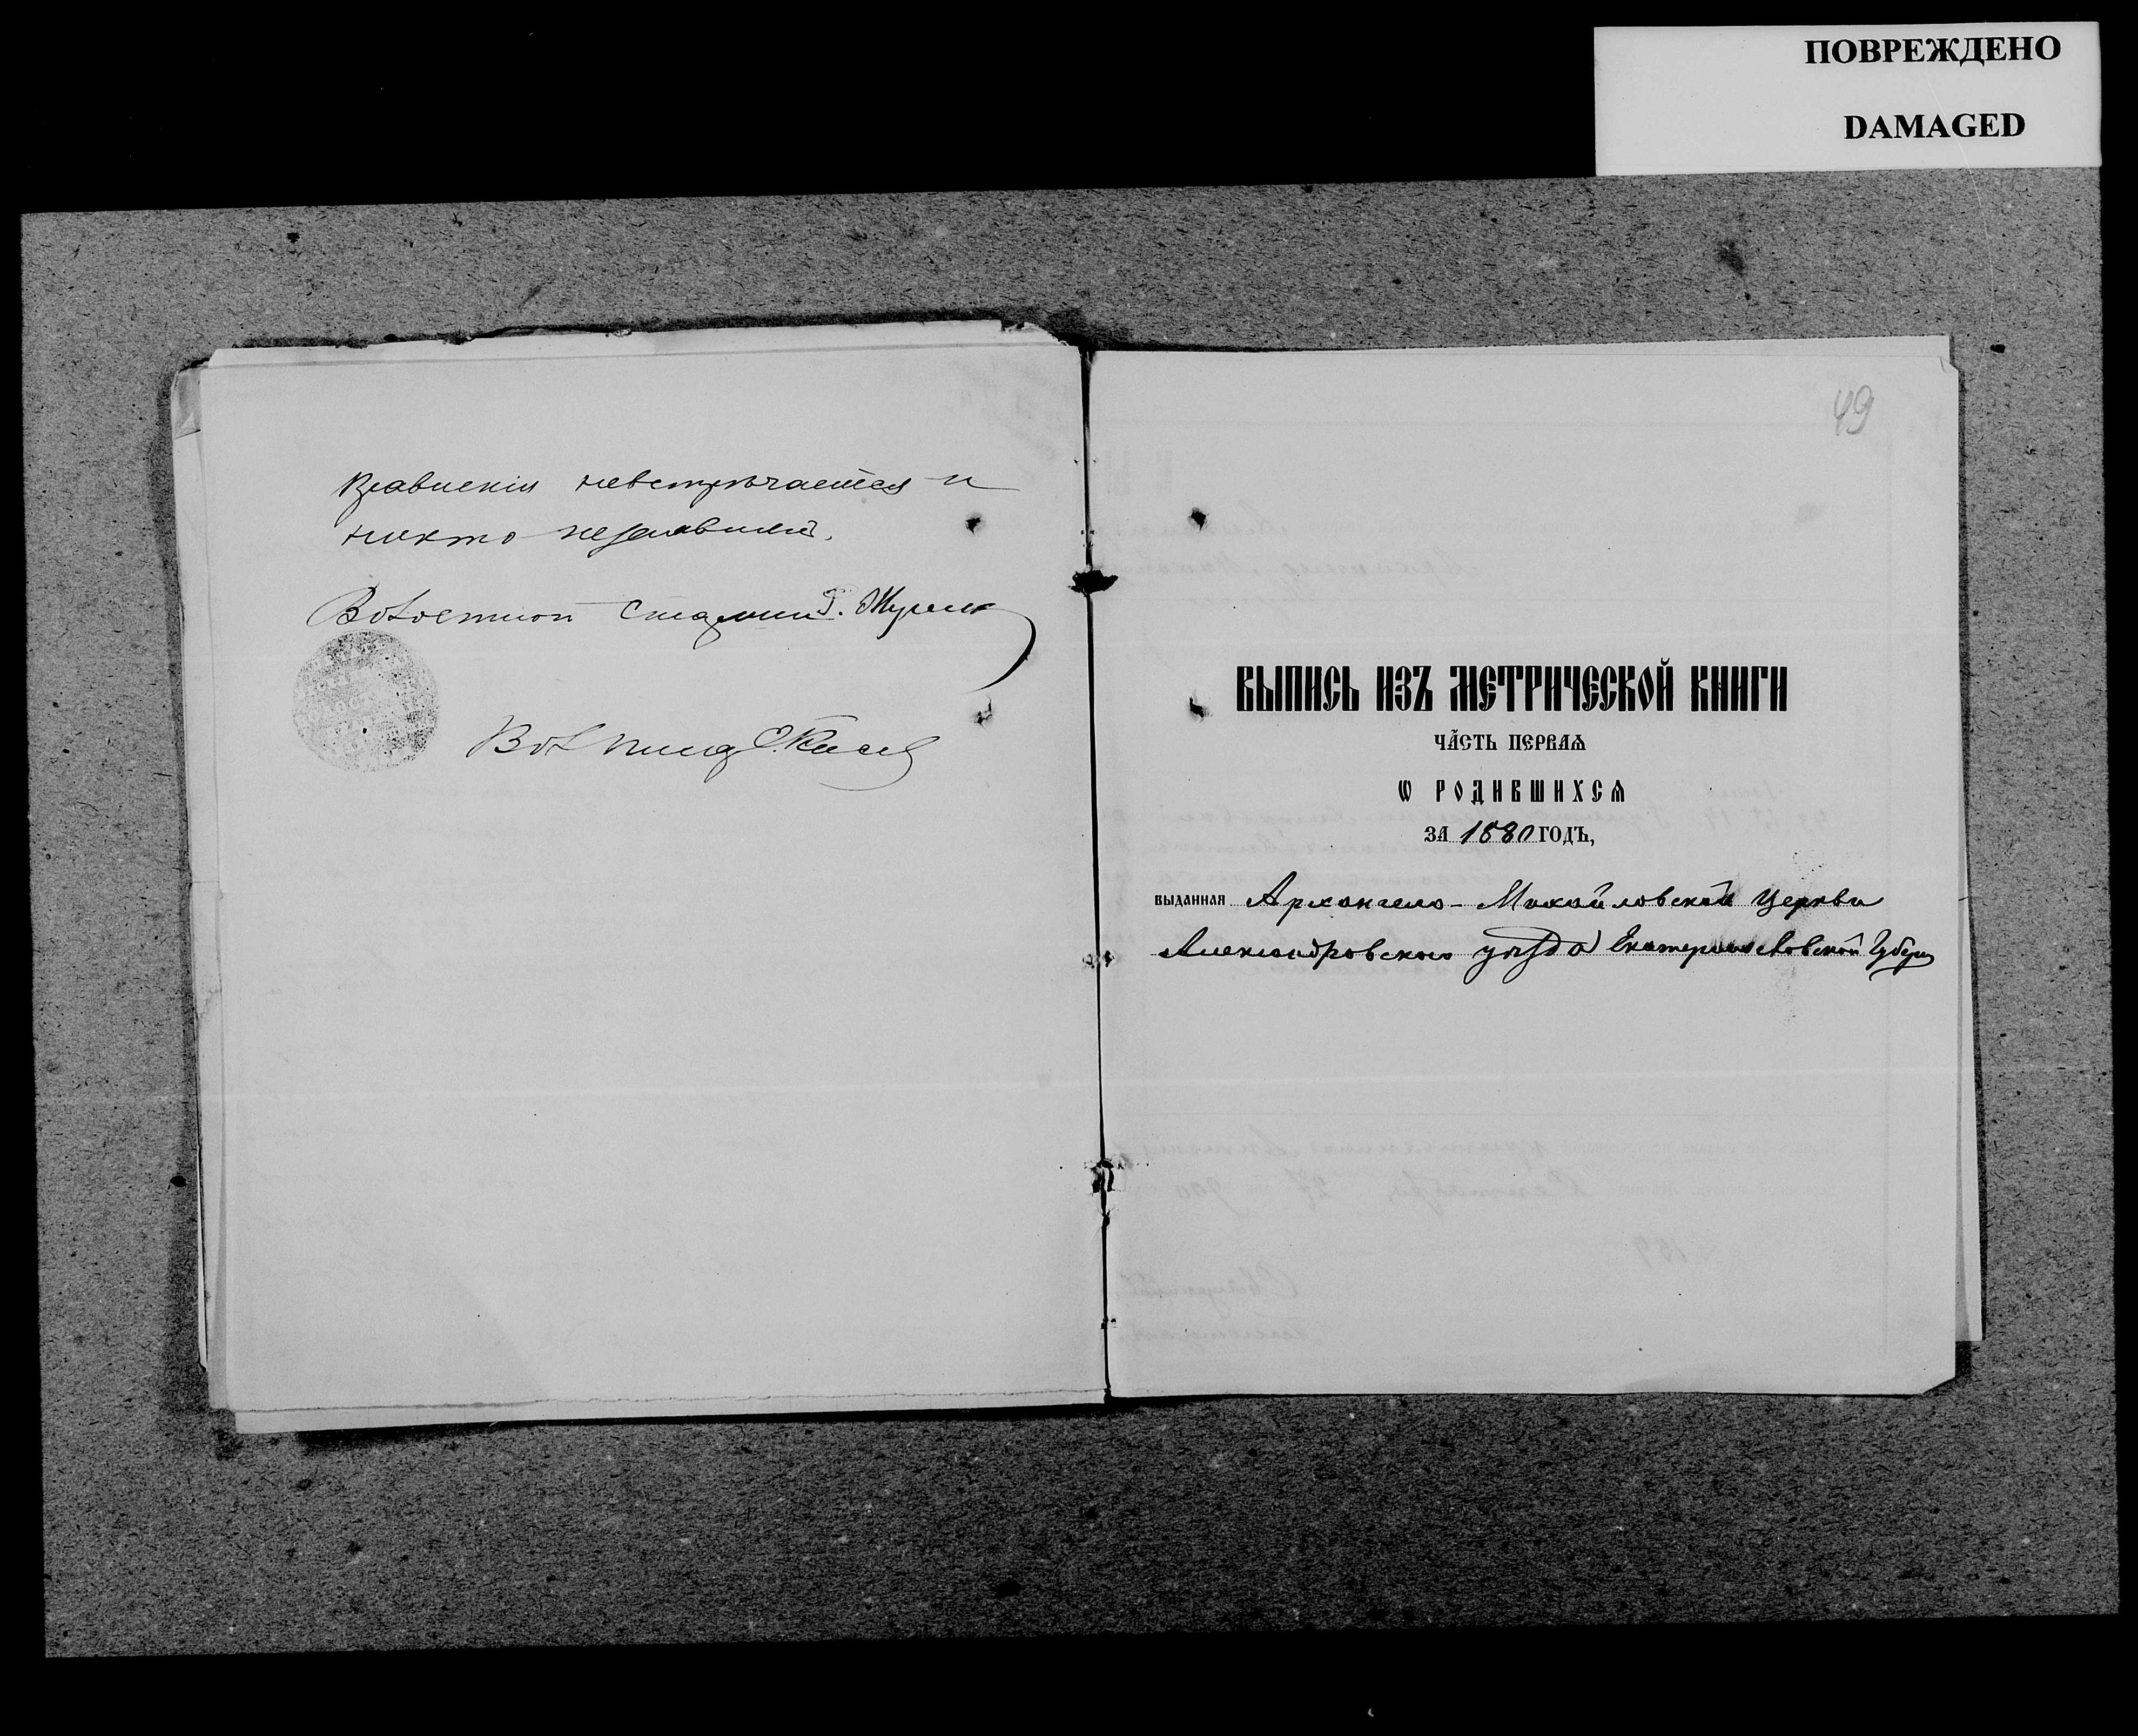 ПОВРЕЖДЕНО
DAMAGED
49
невстрѣчается и
никто незаявилъ.
Волостной Старшина
Вол Писарь
ВЫПИСЬ ИЗЪ МЕТРИЧЕСКОЙ КНИГИ
ЧАСТЬ ПЕРВАЯ
Ѡ РОДИВШИХСЯ
ЗА 1880 ГОДЪ,
ВЫДАННАЯ Архангело-Михайловской Церкви
Александровскаго уѣзда Екатеринославской Губерн